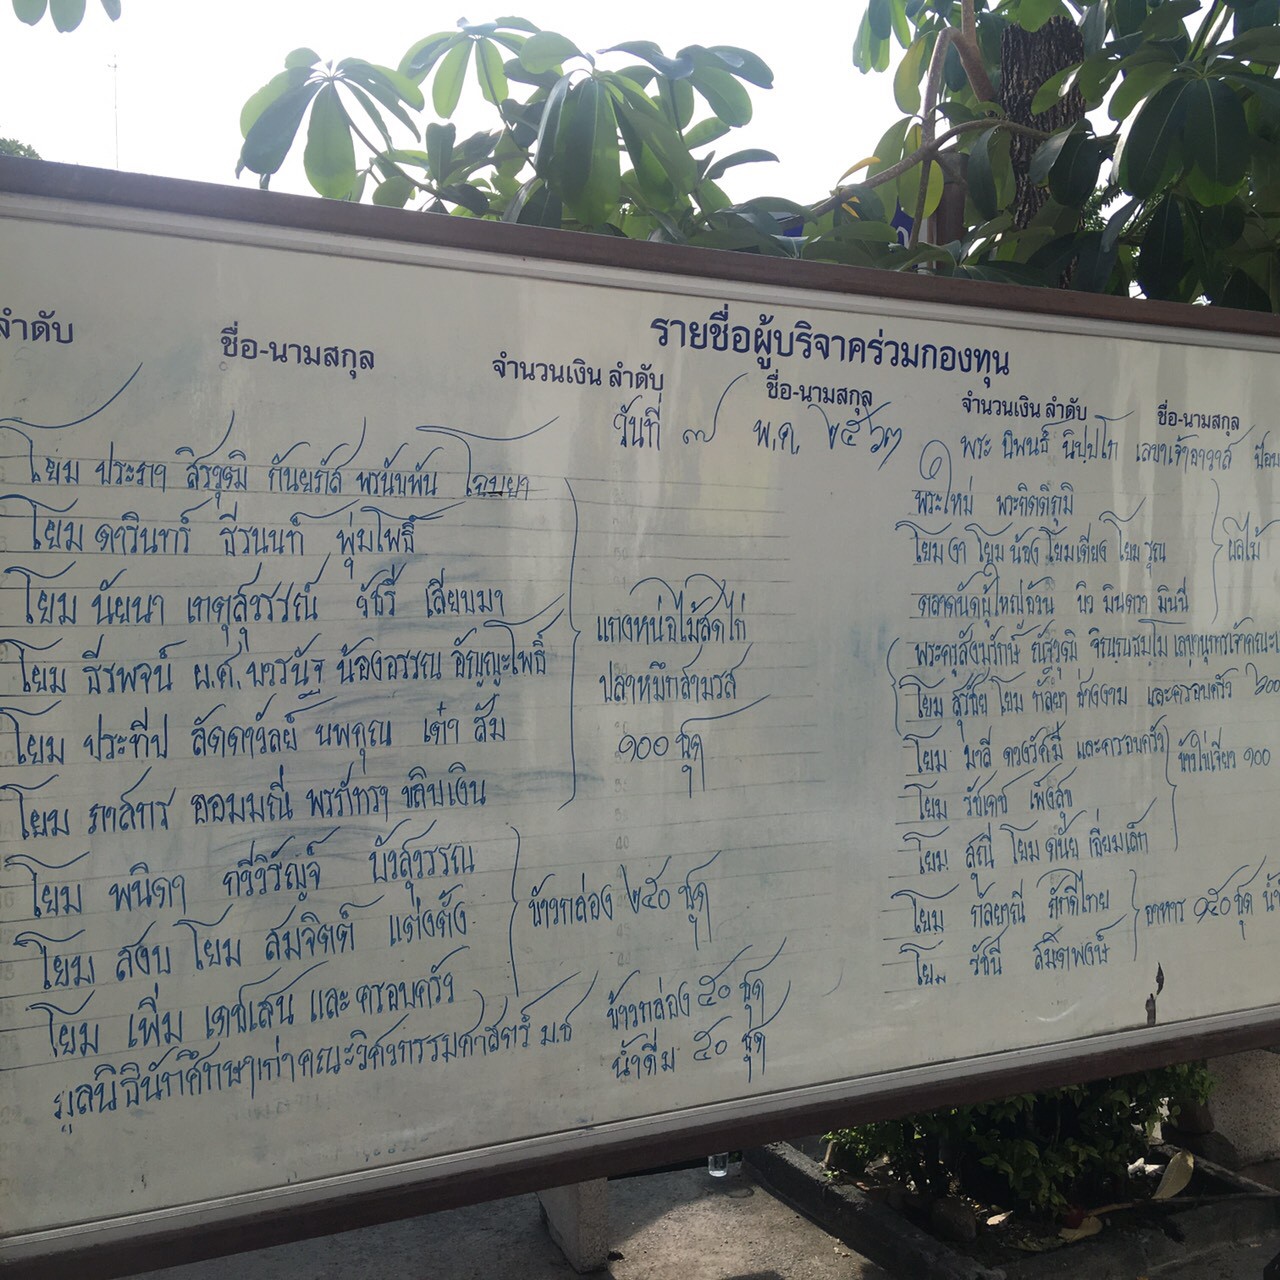 รายชื่อผู้บริจาคร่วมกองทุน
ลำดับ ชื่อ-นามสกุล จำนวนเงิน ลำดับ ชื่อ-นามสกุล จำนวนเงิน ลำดับ ชื่อ-นามสกุล
วันที่ ๗ พ.ค. ๒๕๖๓
โยม ประภา สิรวุฒิ กันยภัส พรนับพัน ไชยยา
โยม ดารินทร์ ธีรนนท์ พุ่มโพธิ์
โยม นัยนา เกตุสุวรรณ์ วัชรี เสียบมา
โยม ธีรพจน์ ผ.ศ. บวรนัฐ น้องอรรณ อัญญะโพธิ์
โยม ประทีป ลัดดาวัลย์ นพคุณ เต๋า ส้ม
โยม ภาสกร ออมมณี่ พรภัทรา ขลิบเงิน
แกงหน่อไม้สดไก่
ปลาหมึกสามรส
๑๐๐ ชุด
โยม พนิดา กวีวิรัญจ์ บัวสุวรรณ
โยม สงบ โยม สมจิตต์ แต่งตั้ง
ข้าวกล่อง ๒๕๐ ชุด
โยม เพิ่ม เดชเสน และ ครอบครัว
มูลนิธินักศึกษาเก่าคณะวิศวกรรมศาสตร์ ม.ช
ข้าวกล่อง ๕๐ ชุด
น้ำดื่ม ๕๐ ชุด
พระ นิพนธ์ นิปปโก เลขาเจ้าอาวาส
พระใหม่ พระกิตติภูมิ
โยม งา โยม น้อง โยมเตียง โยม รุณ
ผลไม้
ตลาดนัดผู้ใหญ่อ้วน บิว มินตรา มินนี่
พระครูสังฆรักษ์
โยม สุรชัย โยม กัลยา ช่างงาม และครอบครัว
โยม มาลี ดวงรัศมี และครอบครัว
ข้าวไข่เจียว ๑๐๐
โยม วัชเดช เพ็งสุข
โยม สุณี โยม ดนัย เจี่ยมเล็ก
โยม กัลยาณี ภักดีไทย
อาหาร ๑๕๐ ชุด
โยม รัชนี สมิตพงษ์